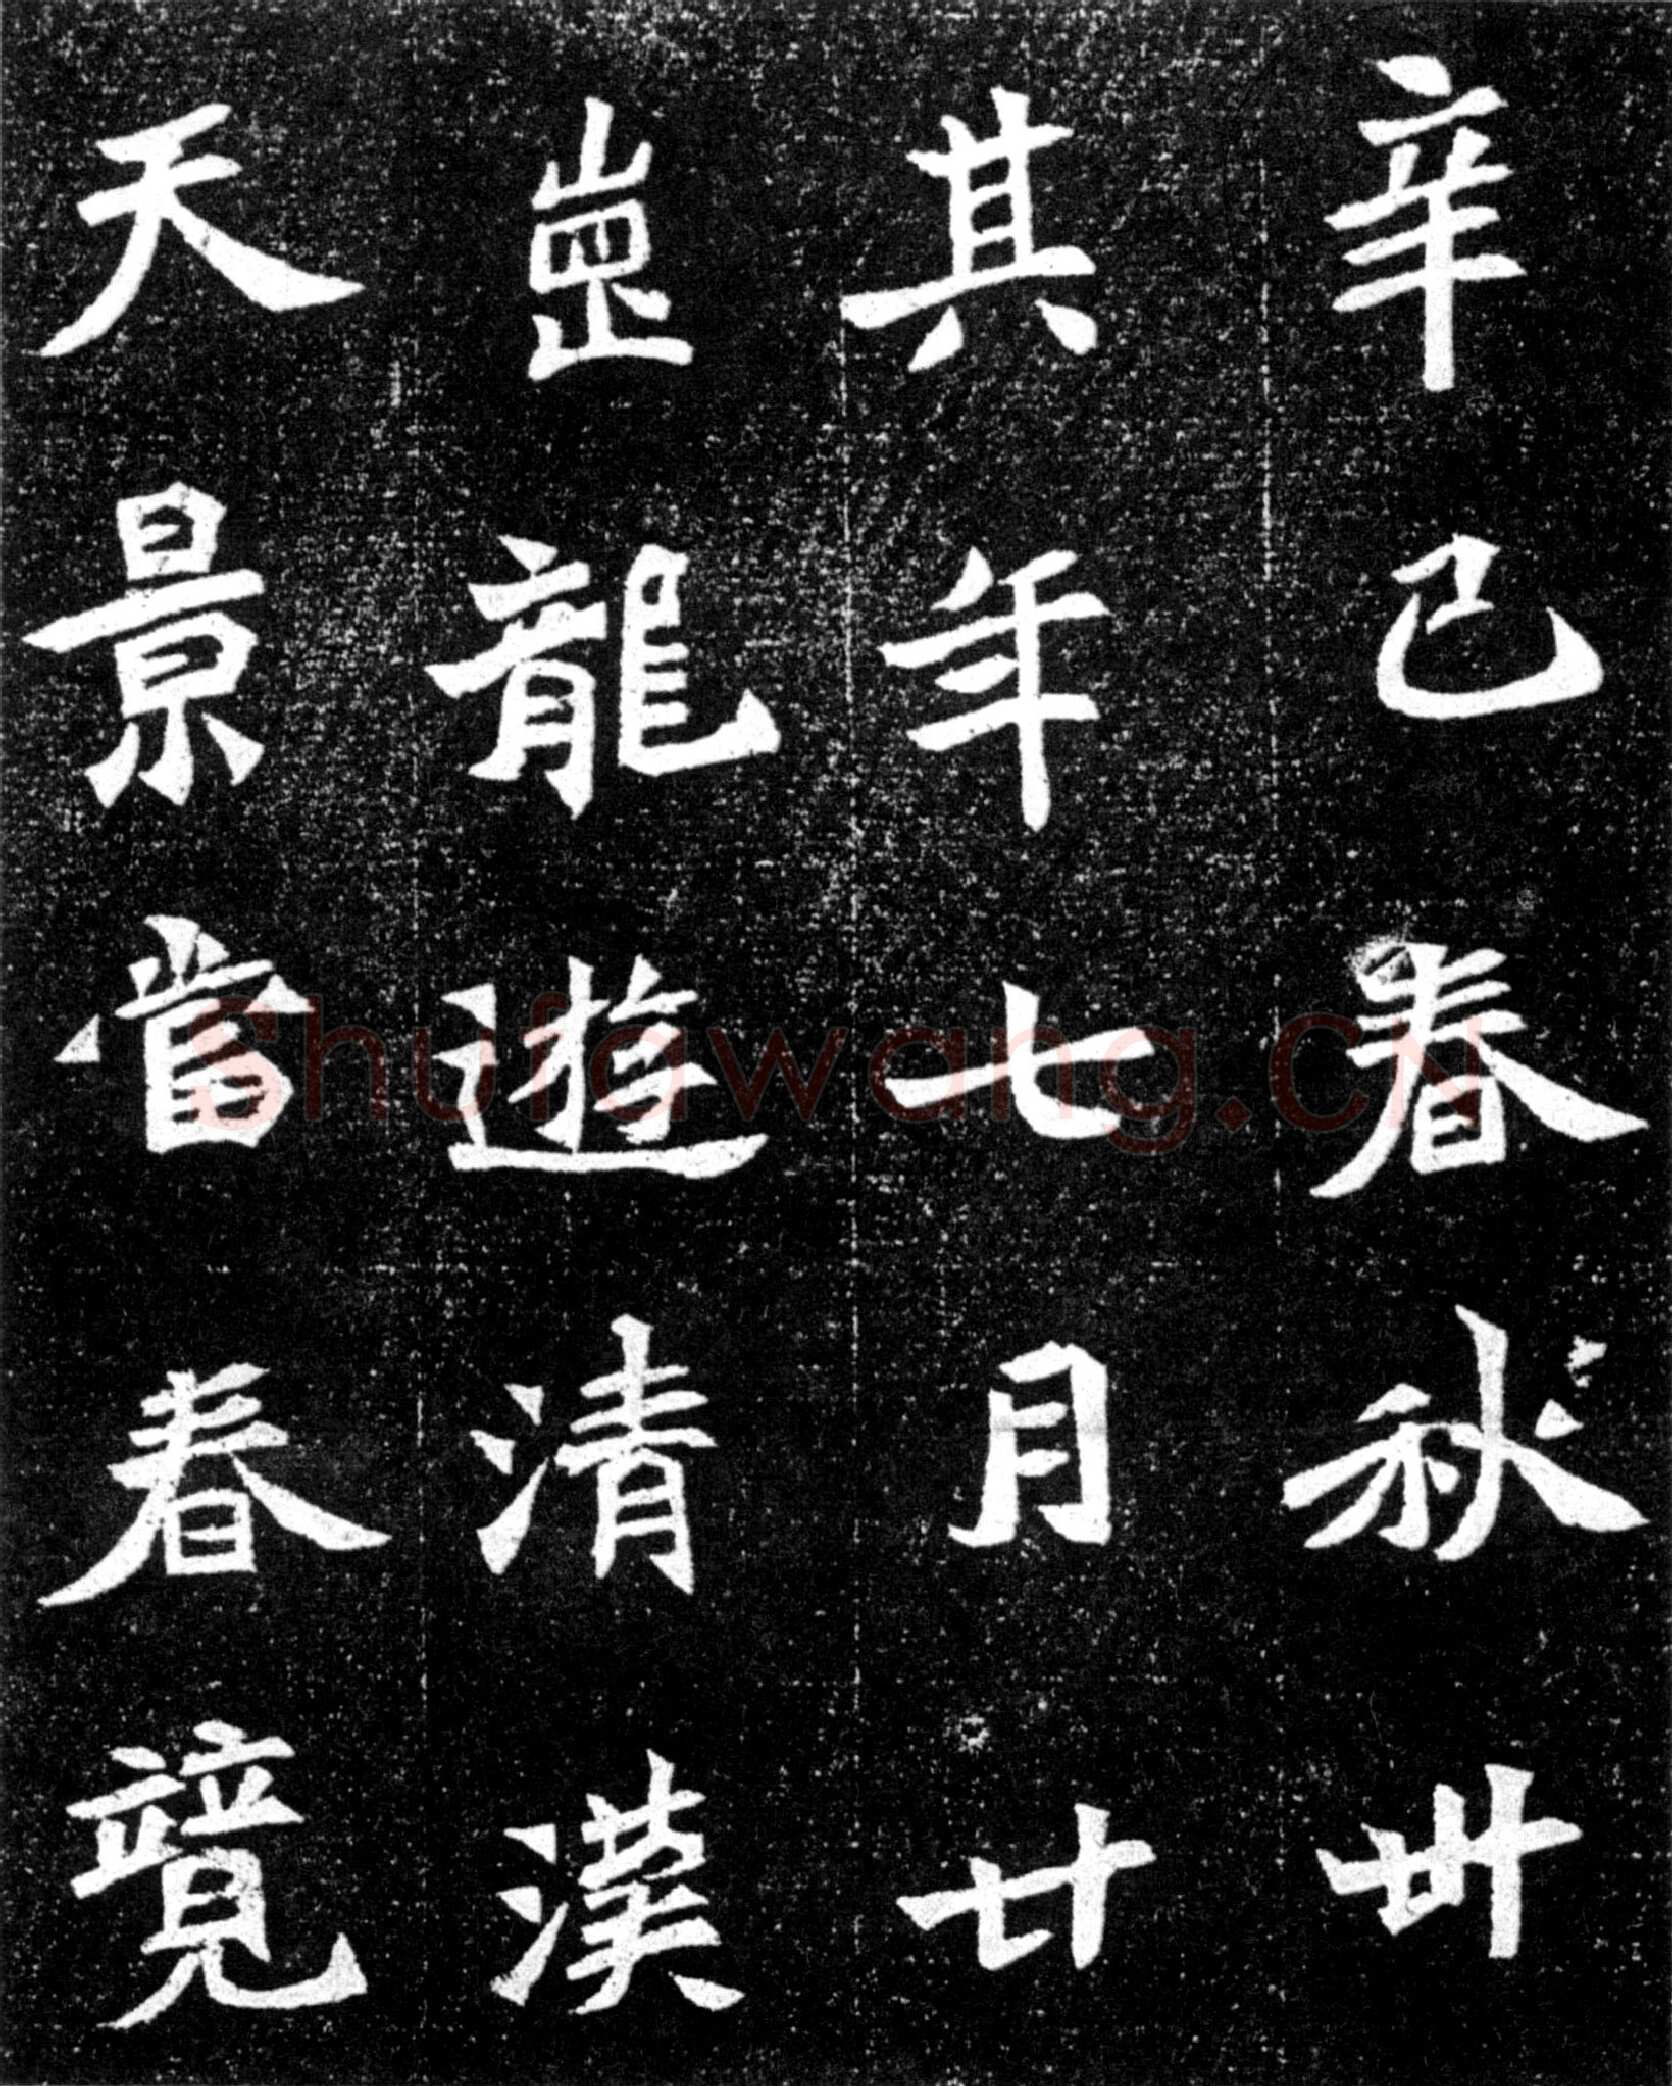 辛巳春秋卅
其年七月廿
龍遊清漢
天景當春競
Shufawang.CN